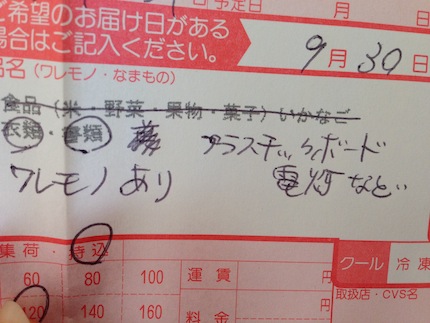 ご希望のお届け日がある
場合はご記入ください。
予定日 月 日
9月30日
品名(ワレモノ・なまもの)
食品(米・野菜・果物・菓子)いかなご
衣類・書類 プラスチックボード
ワレモノ あり 電灯など
集荷・持込
60 80 100 運賃 円
120 140 160 料金 円
クール 冷凍
取扱店・CVS名